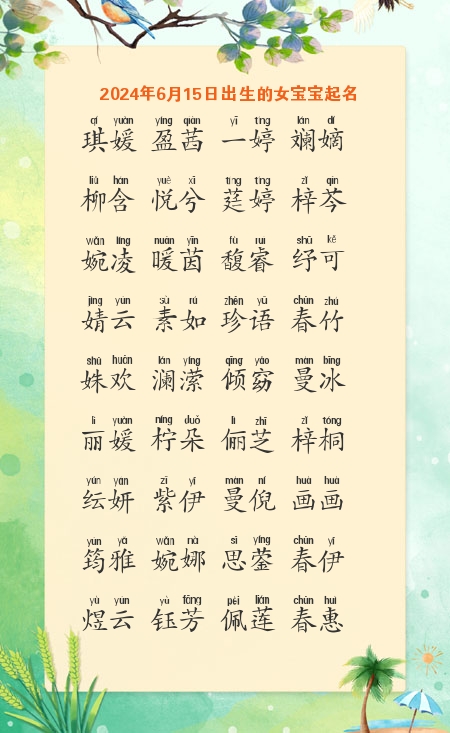 2024年6月15日出生的女宝宝起名
qí yuàn yíng qiàn yī tíng lán dí
琪媛 盈茜 一婷 斓嫡
liǔ hán yuè xī tíng tíng zǐ qín
柳含 悦兮 莛婷 梓芩
wǎn líng nuǎn yīn fù ruì shū kě
婉凌 暖茵 馥睿 纾可
jìng yún sù rú zhēn yǔ chūn zhú
婧云 素如 珍语 春竹
shū huān lán yíng qīng yǎo màn bīng
姝欢 澜潆 倾窈 曼冰
lì yuàn níng duǒ lì zhī zǐ tóng
丽媛 柠朵 俪芝 梓桐
yún yán zǐ yī màn ní huà huà
纭妍 紫伊 曼倪 画画
yún yǎ wǎn nà sī yíng chūn yī
筠雅 婉娜 思蓥 春伊
yù yún yù fāng pèi lián chūn huì
煜云 钰芳 佩莲 春惠